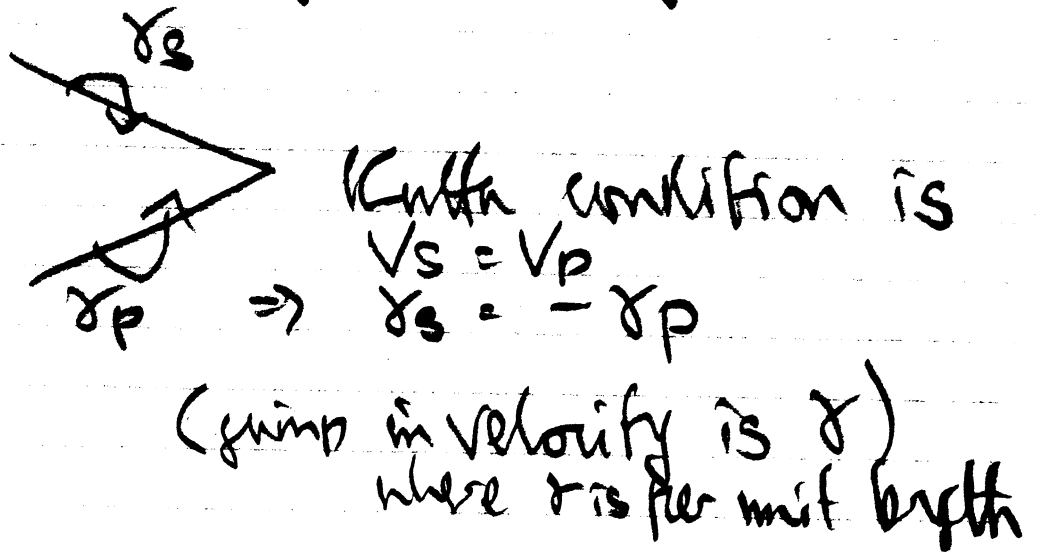 γs
Kutta condition is
Vs = Vp
γp ⇒ γs = − γp
(jump in velocity is γ)
where γ is per unit length